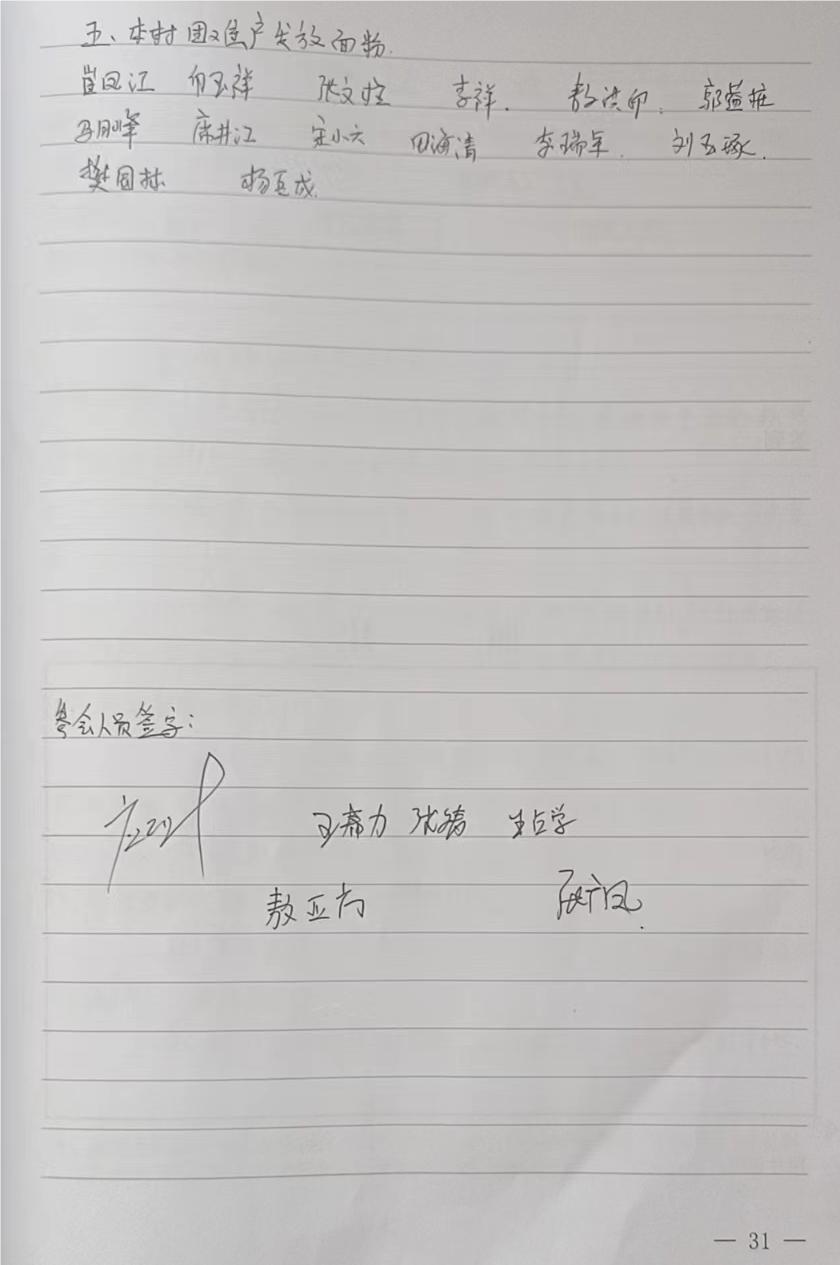 五、本村困难户发放面粉.
崔国江 付玉祥 张文 李祥. 敖洪印. 郭益
峰 席井江 宋小六 田海清 李瑞年. 刘玉琢.
樊国林 杨玉成.
参会人员签字:
王希力 张 占学
敖亚 凤.
— 31 —